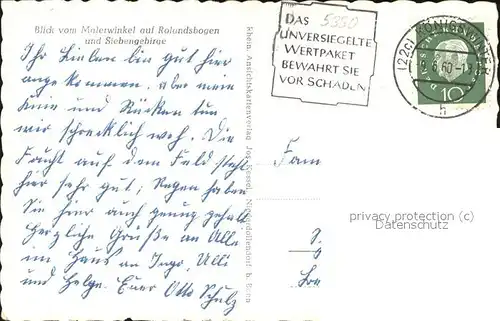 Blick vom Malerwinkel auf Rolandsbogen
und Siebengebirge
Ihr Lieben bin gut hier
angekommen, aber mein
Knie und Rücken tun
mir schrecklich weh. Die
Frucht auf dem Feld steht
hier sehr gut; Regen haben
Sie hier auch genug gehabt
Herzliche Grüße an Alle
im Haus an Ingo, Ulli
und Helge. Euer Otto Schulz
rhein. Ansichtskartenverlag Jos. Kessel, Niederdollendorf b. Bonn
5350
DAS
UNVERSIEGELTE
WERTPAKET
BEWAHRT SIE
VOR SCHADEN
(22c) KÖNIGSWINTER
h
10
Fam
privacy protection (c)
Datenschutz